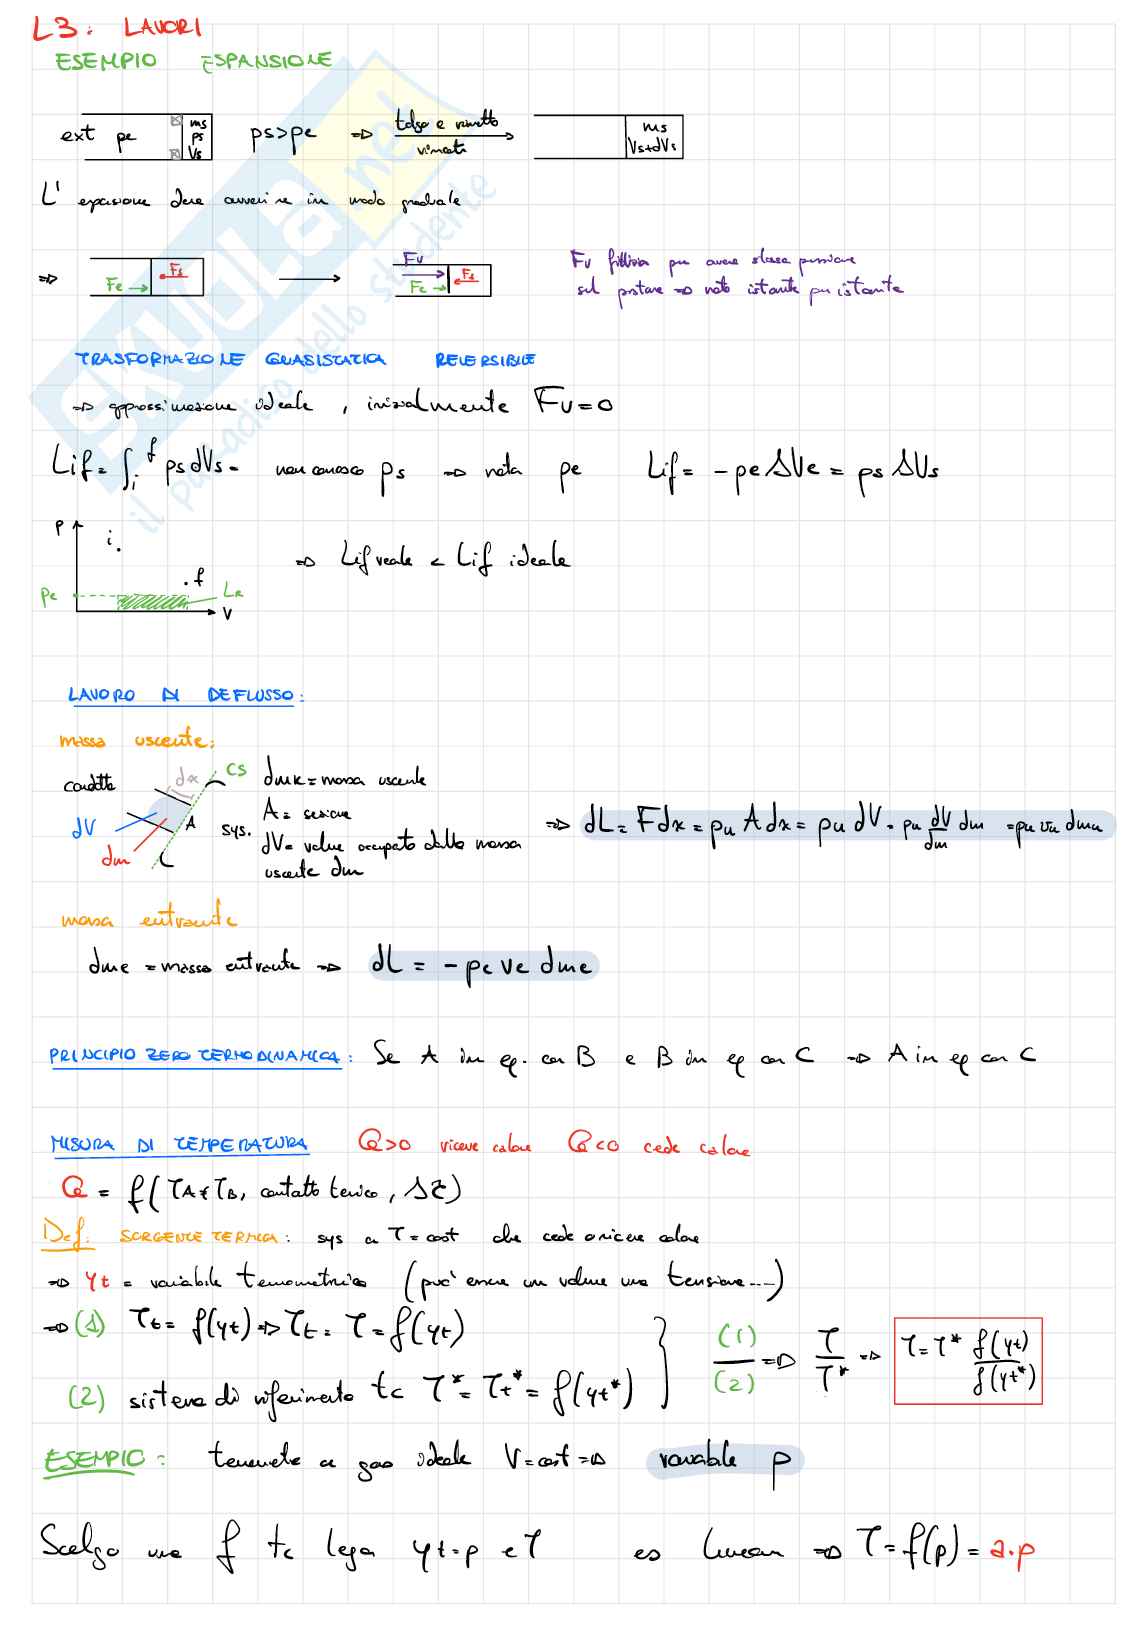 L3: LAVORI
ESEMPIO ESPANSIONE
ext pe ms ps Vs ps>pe => tolgo e rimetto vincoli ms Vs+dVs
L' espansione deve avvenire in modo graduale
=> Fe Fs Fv Fe Fs Fv fittizia per avere stessa pressione
sul pistone => noto istante per istante
TRASFORMAZIONE QUASISTATICA REVERSIBILE
=> approssimazione ideale, inizialmente Fv=0
Lif = ∫i^f ps dVs = non conosco ps => nota pe Lif = -pe ΔVe = ps ΔVs
P i. .f pe Le V
=> Lif reale < Lif ideale
LAVORO DI DEFLUSSO:
massa uscente:
condotto dx CS dV dm A sys.
dmu = massa uscente
A = sezione
dV = volume occupato dalla massa
uscente dm
=> dL = Fdx = pu A dx = pu dV = pu dV/dm dm = pu vu dmu
massa entrante
dme = massa entrante => dL = - pe ve dme
PRINCIPIO ZERO TERMODINAMICA: Se A in eq. con B e B in eq con C => A in eq con C
MISURA DI TEMPERATURA Q>0 riceve calore Q<0 cede calore
Q = f(TA≠TB, contatto termico, Δt)
Def: SORGENTE TERMICA: sys a T=cost che cede o riceve calore
=> yt = variabile termometrica (può essere un volume una tensione...)
=> (1) Tt = f(yt) => Tt = T = f(yt)
(2) sistema di riferimento tc T* = Tt* = f(yt*)
(1)/(2) => T/T* => T = T* f(yt)/f(yt*)
ESEMPIO: termometro a gas ideale V=cost => variabile p
Scelgo una f tc lega yt=p e T es lineare => T = f(p) = a·p
SKUOLA.net
il paradiso dello studente